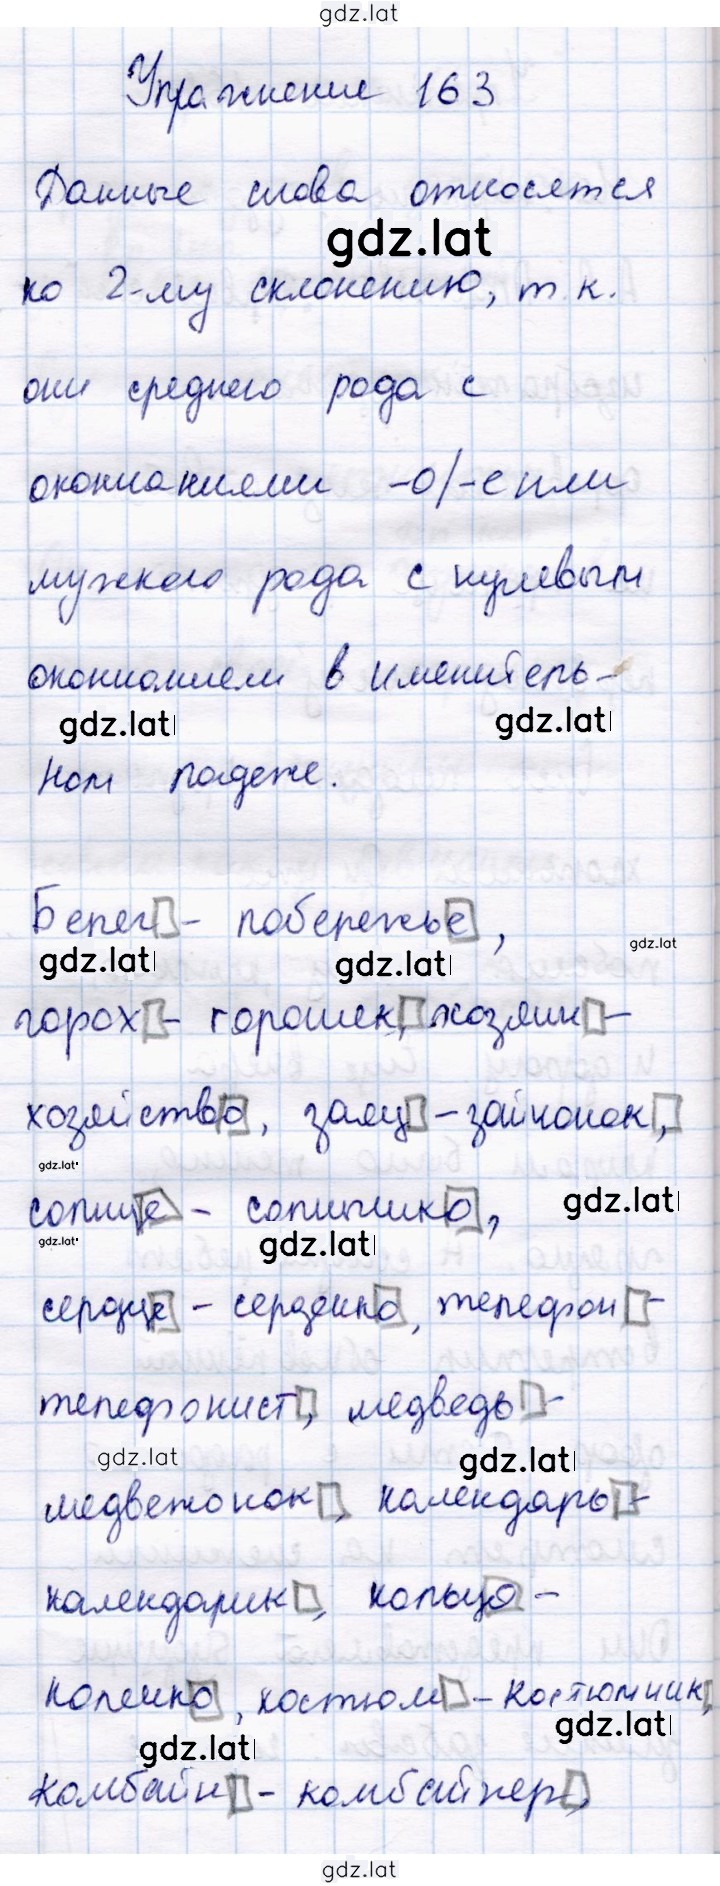 gdz.lat
Упражнение 163
Данные слова относятся
gdz.lat
ко 2-му склонению, т.к.
они среднего рода с
окончаниями -о/-е или
мужского рода с нулевым
окончанием в именитель-
gdz.lat gdz.lat
ном падеже.
Берег - побережье,
gdz.lat gdz.lat gdz.lat
горох - горошек, хозяин -
хозяйство, заяц - зайчонок,
gdz.lat gdz.lat
солнце - солнышко,
gdz.lat gdz.lat
сердце - сердечко, телефон -
телефонист, медведь -
gdz.lat gdz.lat
медвежонок, календарь -
календарик, кольцо -
колечко, костюм - костюмчик,
gdz.lat gdz.lat
комбайн - комбайнер,
gdz.lat